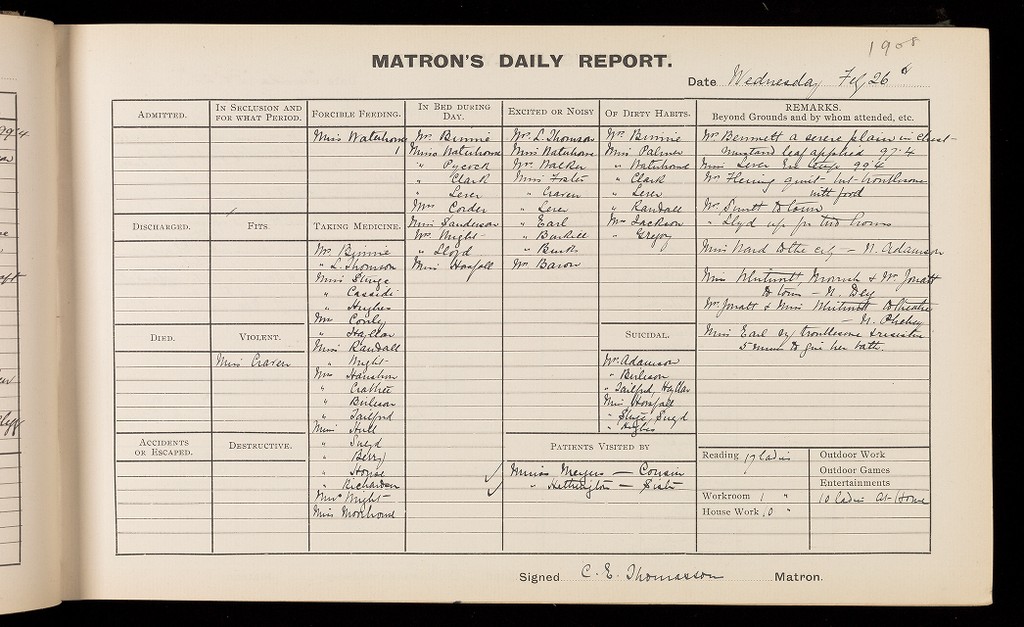 1908
MATRON'S DAILY REPORT.
Date Wednesday Feb 26th
ADMITTED.
IN SECLUSION AND FOR WHAT PERIOD.
FORCIBLE FEEDING.
Miss Waterhouse
1
IN BED DURING DAY.
Mrs Binnie
Miss Waterhouse
" Pycock
" Clark
" Lever
Mrs Corder
Miss Sanderson
Mrs Wright
" Lloyd
Miss Horsfall
EXCITED OR NOISY
Mrs L. Thomson
Miss Waterhouse
Mrs Walker
Miss Foster
" Craven
" Lever
" Earl
" Burkill
" Burks
Mrs Baron
OF DIRTY HABITS.
Mrs Binnie
Miss Palmer
" Waterhouse
" Clark
" Lever
" Randall
Mrs Jackson
" Gregory
REMARKS.
Beyond Grounds and by whom attended, etc.
Mrs Bennett a severe pain in chest
mustard leaf applied 97.4
Miss Lever Evg temp 99.4
Mrs Fleming quiet but troublesome
with food
to town
" Lloyd up for two hours
Miss Ward to the city - N. Adamson
Miss Whitwell, & Mrs
to town - N. Dey
Mrs & Miss Whitwell to theatre
- N.
Miss Earl very troublesome & resistive
5 nurses to give her bath.
DISCHARGED.
FITS.
TAKING MEDICINE.
Mrs Binnie
" L. Thomson
Miss Sturge
" Cassidi
" Hughes
Mrs Conly
" Hayllar
Miss Randall
" Wright
Mrs
" Crabtree
" Birleson
" Tailford
Miss Hull
" Sugd
" Berry
" House
" Richardson
Wright
Miss Morehouse
DIED.
VIOLENT.
Miss Craven
SUICIDAL.
Mrs Adamson
" Birleson
" Tailford, Hayllar
Miss Horsfall
" Sturge, Sugd
" Hughes
ACCIDENTS OR ESCAPED.
DESTRUCTIVE.
PATIENTS VISITED BY
Misses Meyers - Cousin
" Hetherington - Sister
Reading 19 ladies
Workroom 1 "
House Work 10 "
Outdoor Work
Outdoor Games
Entertainments
10 ladies At-Home
Signed C. E. Thomasson Matron.